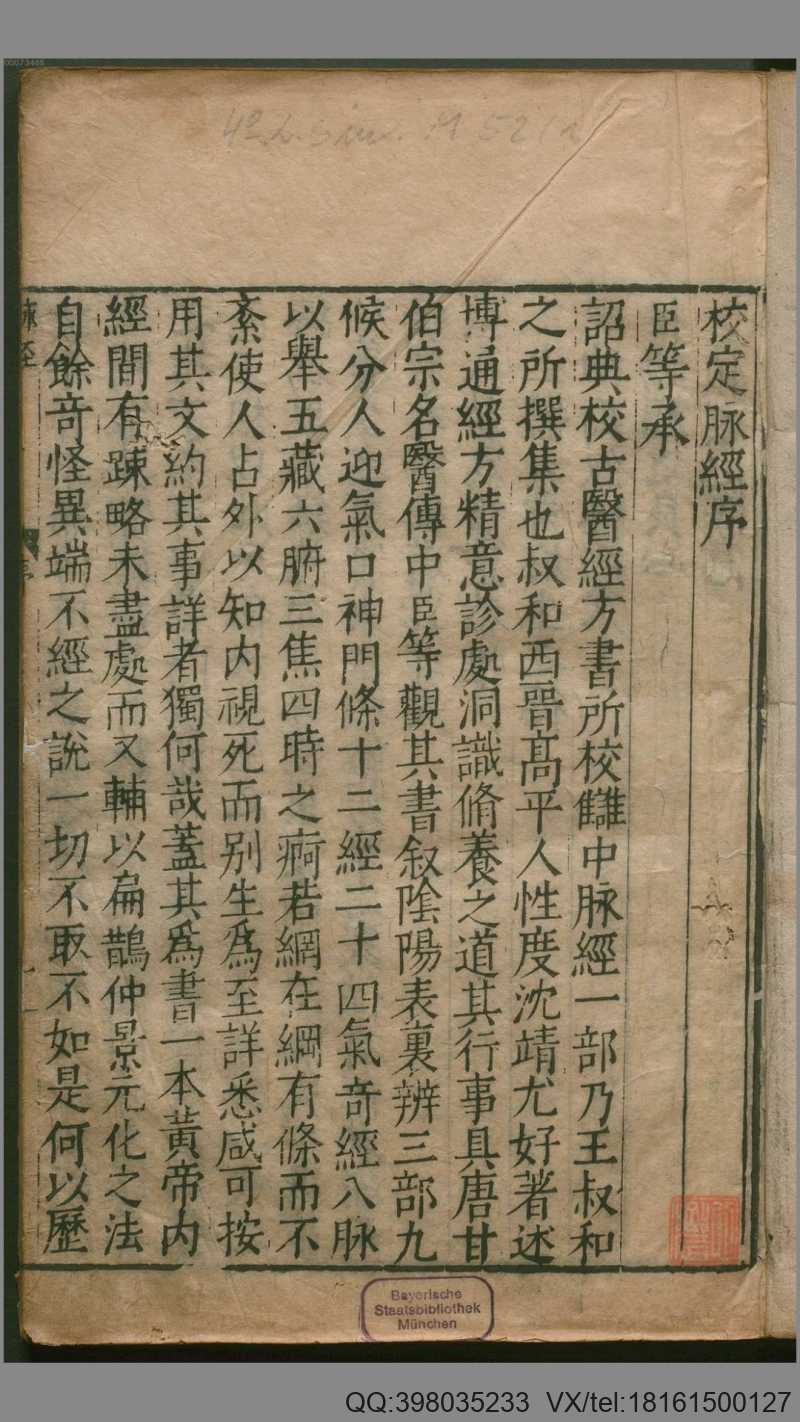 校定脉經序
臣等承
詔典校古醫經方書所校讎中脉經一部乃王叔和
之所撰集也叔和西晉髙平人性度沈靖尤好著述
博通經方精意診處洞識脩養之道其行事具唐甘
伯宗名醫傳中臣等觀其書叙陰陽表裏辨三部九
候分人迎氣口神門條十二經二十四氣奇經八脉
以舉五藏六腑三焦四時之痾若網在綱有條而不
紊使人占外以知内視死而别生爲至詳悉咸可按
用其文約其事詳者獨何哉蓋其爲書一本黄帝内
經間有踈略未盡處而又輔以扁鵲仲景元化之法
自餘竒怪異端不經之說一切不取不如是何以歷
脉經
Bayerische
Staatsbibliothek
München
QQ:398035233 VX/tel:18161500127